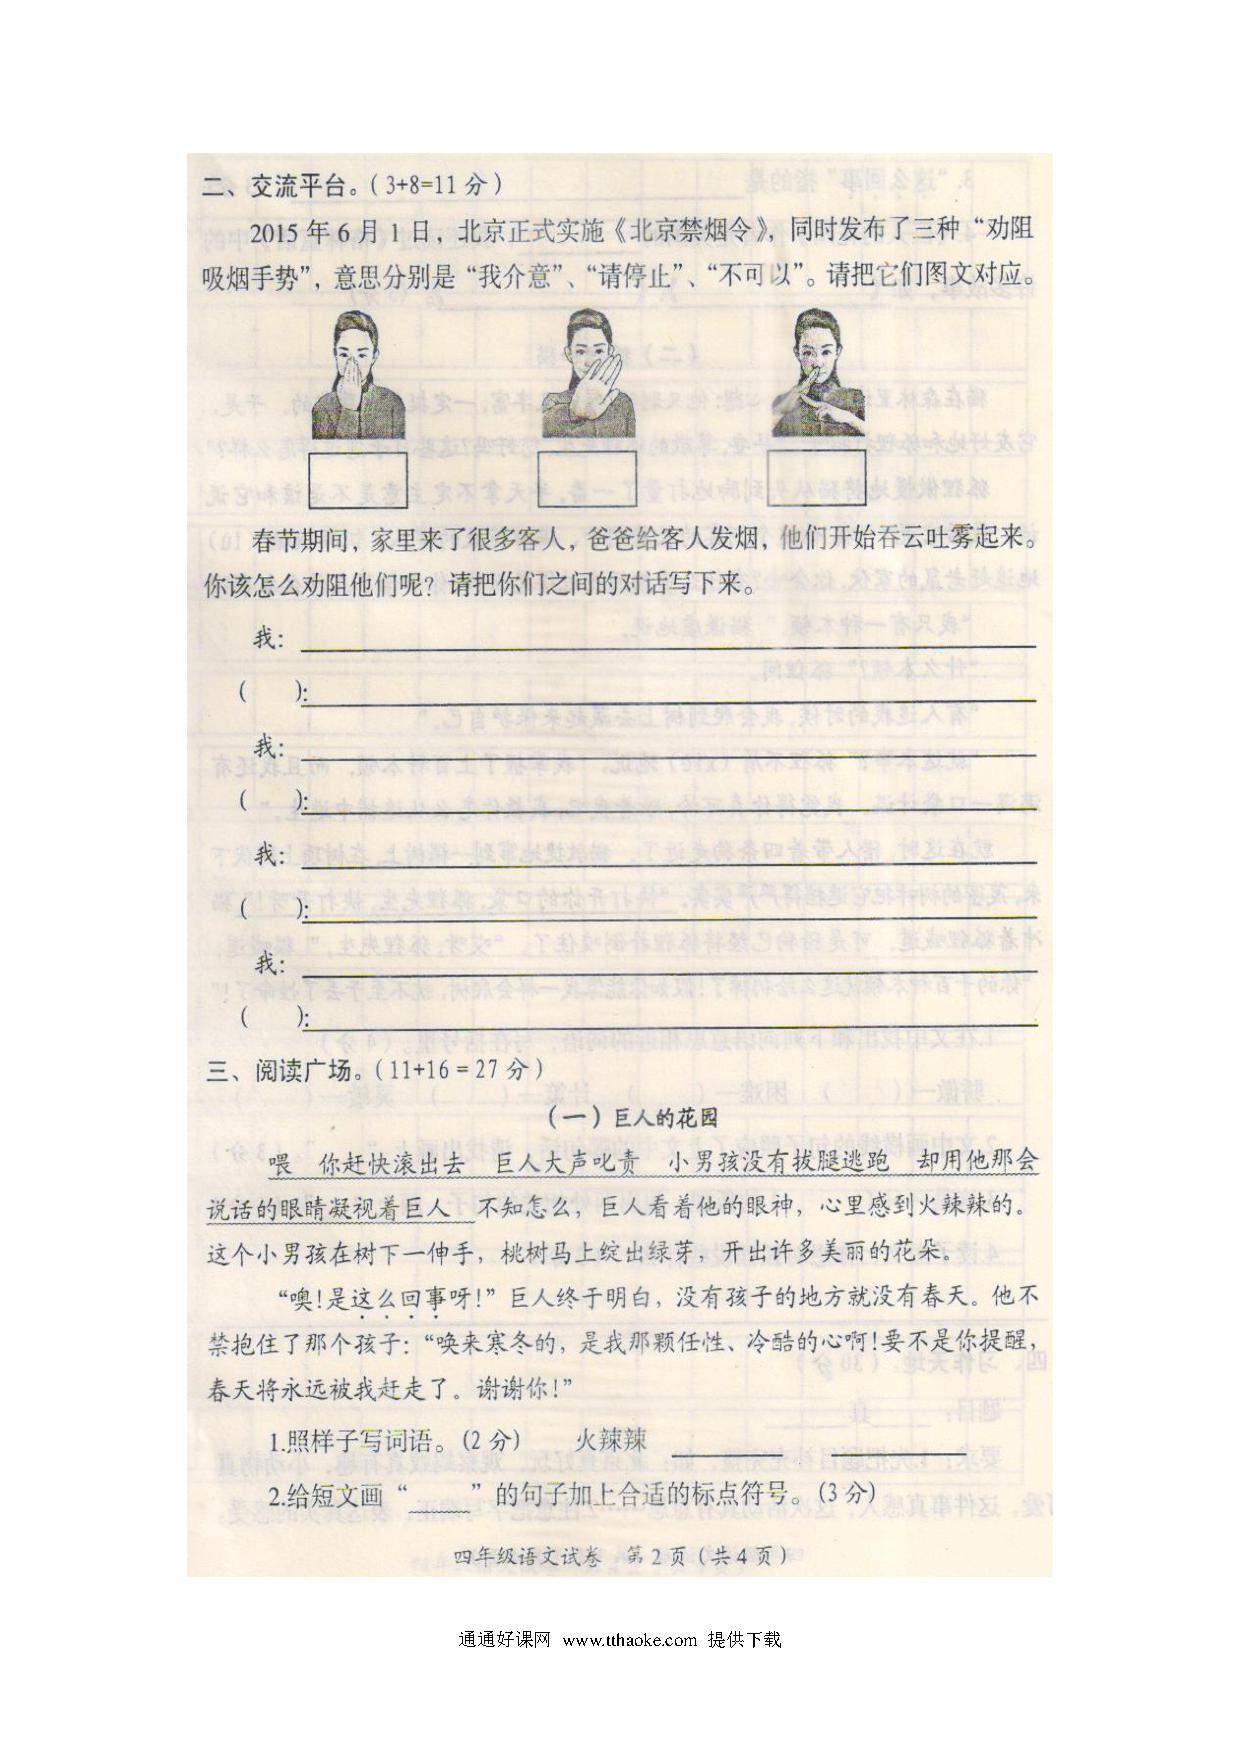 二、交流平台。（3+8=11 分）
2015 年 6 月 1 日，北京正式实施《北京禁烟令》，同时发布了三种 “劝阻
吸烟手势”，意思分别是 “我介意”、“请停止”、“不可以”。请把它们图文对应。
春节期间，家里来了很多客人，爸爸给客人发烟，他们开始吞云吐雾起来。
你该怎么劝阻他们呢？请把你们之间的对话写下来。
我：
（ ）：
我：
（ ）：
我：
（ ）：
我：
（ ）：
三、阅读广场。（11+16 = 27 分）
（一）巨人的花园
喂 你赶快滚出去 巨人大声叱责 小男孩没有拔腿逃跑 却用他那会
说话的眼睛凝视着巨人 不知怎么，巨人看着他的眼神，心里感到火辣辣的。
这个小男孩在树下一伸手，桃树马上绽出绿芽，开出许多美丽的花朵。
“噢！是这么回事呀！” 巨人终于明白，没有孩子的地方就没有春天。他不
禁抱住了那个孩子：“唤来寒冬的，是我那颗任性、冷酷的心啊！要不是你提醒，
春天将永远被我赶走了。谢谢你！”
1.照样子写词语。（2 分） 火辣辣
2.给短文画 “ ” 的句子加上合适的标点符号。（3 分）
四年级语文试卷 第 2 页（共 4 页）
通通好课网 www.tthaoke.com 提供下载